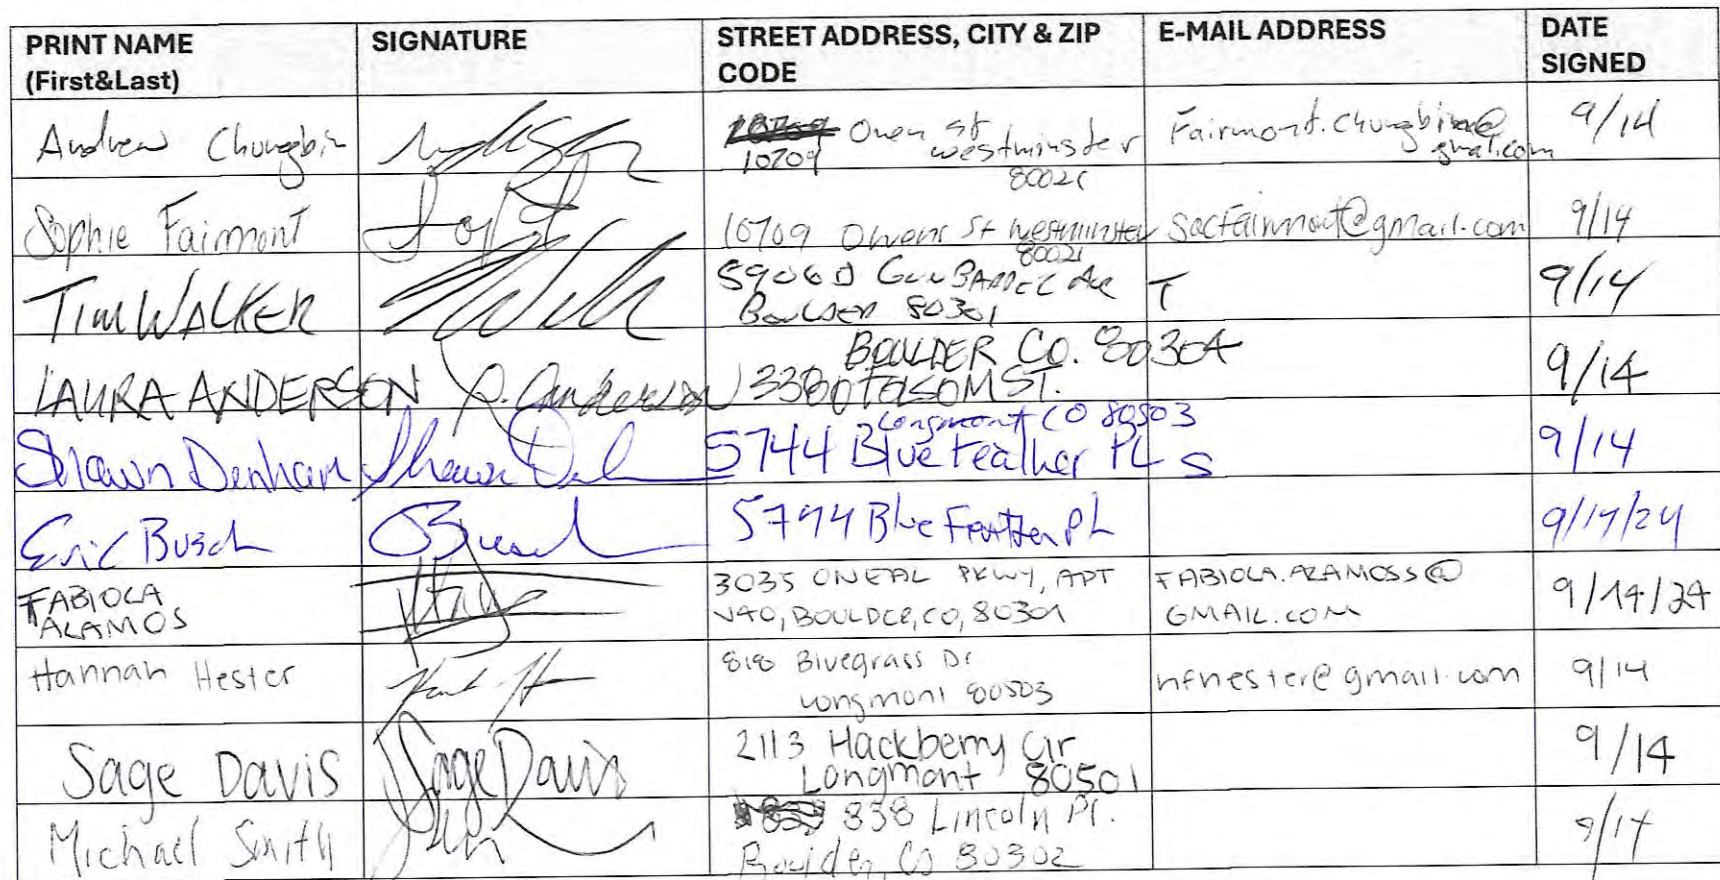 PRINT NAME (First&Last) SIGNATURE STREET ADDRESS, CITY & ZIP CODE E-MAIL ADDRESS DATE SIGNED
Andrew Chungbin 10709 Owen St Westminster 80021 Fairmont.chungbin@gmail.com 9/14
Sophie Fairmont 10709 Owens St Westminster 80021 socfairmont@gmail.com 9/14
TIM WALKER Ave BOULDER 80301 T 9/14
LAURA ANDERSON L. Anderson 3380 FOLSOM ST. BOULDER CO. 80304 9/14
Shawn Denham Shawn 5744 Blue Feather PL S Longmont CO 80503 9/14
Eric Busch Busch 5744 Blue Feather PL 9/14/24
FABIOLA ALAMOS 3035 ONEAL PKWY, APT BOULDER, CO, 80301 FABIOLA.ALAMOSS@GMAIL.COM 9/14/24
Hannah Hester 818 Bluegrass Dr Longmont 80503 hfhester@gmail.com 9/14
Sage Davis Sage Davis 2113 Hackberry Cir Longmont 80501 9/14
Michael Smith 838 Lincoln Pl. Boulder, CO 80302 9/14